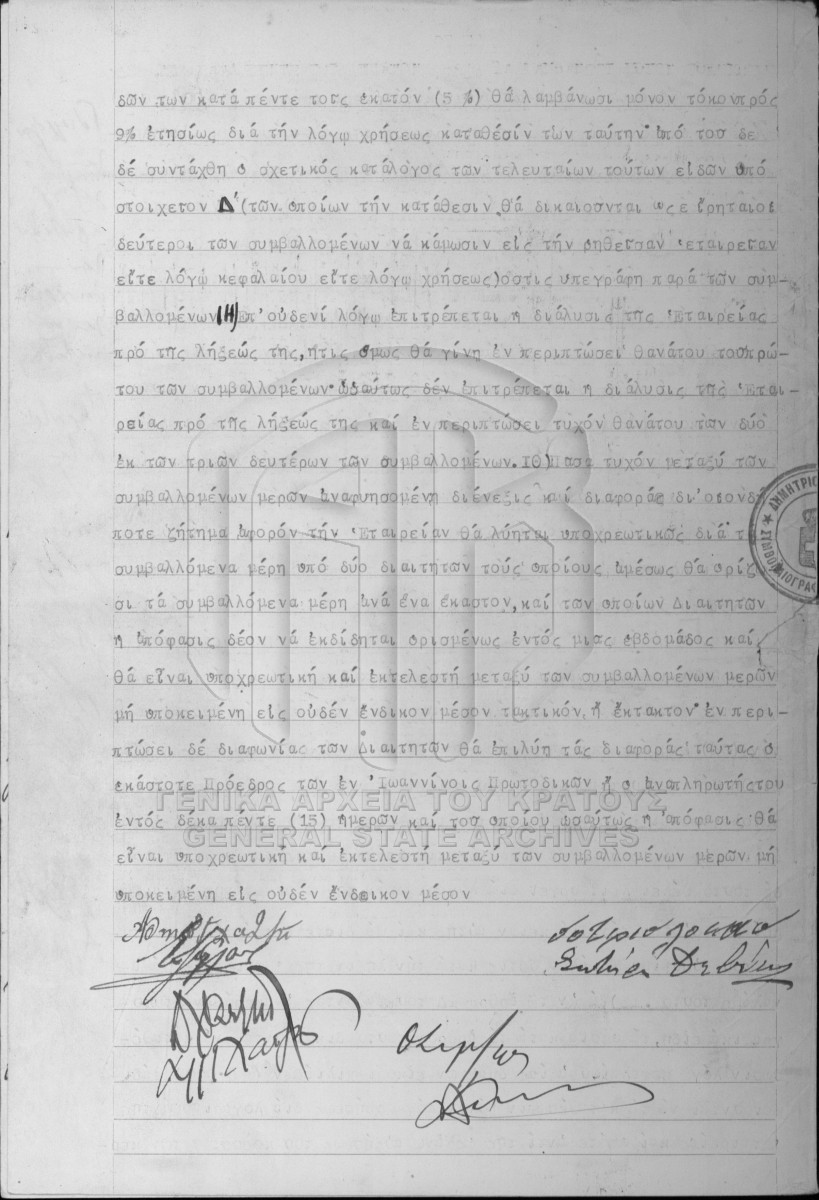 δῶν των κατά πέντε τοῖς ἑκατόν (5 %) θά λαμβάνωσι μόνον τόκονπρός
9% ἐτησίως διά τήν λόγῳ χρήσεως κατάθεσίν των ταύτην ὑπό τοῦ δε
δέ συντάχθη ὁ σχετικός κατάλογος τῶν τελευταίων τούτων εἰδῶν ὑπό
στοιχεῖον Δ' (τῶν ὁποίων τήν κατάθεσιν θά δικαιοῦνται ὡς εἴρηταιοἱ
δεύτεροι τῶν συμβαλλομένων νά κάμωσιν εἰς τήν ρηθεῖσαν ἑταιρείαν
εἴτε λόγῳ κεφαλαίου εἴτε λόγῳ χρήσεως)ὅστις ὑπεγράφη παρά τῶν συμ-
βαλλομένων ΙΗ)Ἐπ'οὐδενί λόγῳ ἐπιτρέπεται ἡ διάλυσις τῆς Ἑταιρείας
πρό τῆς λήξεώς της, ἥτις ὅμως θά γίνῃ ἐν περιπτώσει θανάτου τοῦπρώ-
του τῶν συμβαλλομένων ὡσαύτως δέν ἐπιτρέπεται ἡ διάλυσις τῆς Ἑται-
ρείας πρό τῆς λήξεώς της καί ἐν περιπτώσει τυχόν θανάτου τῶν δύο
ἐκ τῶν τριῶν δευτέρων τῶν συμβαλλομένων. ΙΘ) Πᾶσα τυχόν μεταξύ τῶν
συμβαλλομένων μερῶν ἀναφυησομένη διένεξις καί διαφορά δι'οἱονδή
ποτε ζήτημα ἀφορόν τήν Ἑταιρείαν θά λύηται ὑποχρεωτικῶς διά τά
συμβαλλόμενα μέρη ὑπό δύο διαιτητῶν τούς ὁποίους ἀμέσως θά ὁρίζ
σι τά συμβαλλόμενα μέρη ἀνά ἕνα ἕκαστον, καί τῶν ὁποίων Διαιτητῶν
ἡ ἀπόφασις δέον νά ἐκδίδηται ὁρισμένως ἐντός μιᾶς ἑβδομάδος καί
θά εἶναι ὑποχρεωτική καί ἐκτελεστή μεταξύ τῶν συμβαλλομένων μερῶν
μή ὑποκειμένη εἰς οὐδέν ἔνδικον μέσον τακτικόν ἤ ἔκτακτον ἐν περι-
πτώσει δέ διαφωνίας τῶν Διαιτητῶν θά ἐπιλύῃ τάς διαφοράς ταύτας ὁ
ἑκάστοτε Πρόεδρος τῶν ἐν Ἰωαννίνοις Πρωτοδικῶν ἤ ὁ ἀναπληρωτήςτου
ΓΕΝΙΚΑ ΑΡΧΕΙΑ ΤΟΥ ΚΡΑΤΟΥΣ
ἐντός δέκα πέντε (15) ἡμερῶν καί τοῦ ὁποίου ὡσαύτως ἡ ἀπόφασις θά
GENERAL STATE ARCHIVES
εἶναι ὑποχρεωτική καί ἐκτελεστή μεταξύ τῶν συμβαλλομένων μερῶν μή
ὑποκειμένη εἰς οὐδέν ἔνδικον μέσον